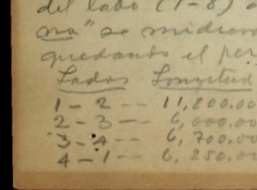 del lado (1-8) a
na" se midieron
quedando el per
Lados Longitud
1 - 2 -- 11,800.00
2 - 3 -- 6,000.00
3 - 4 -- 6,700.00
4 - 1 -- 6,250.00